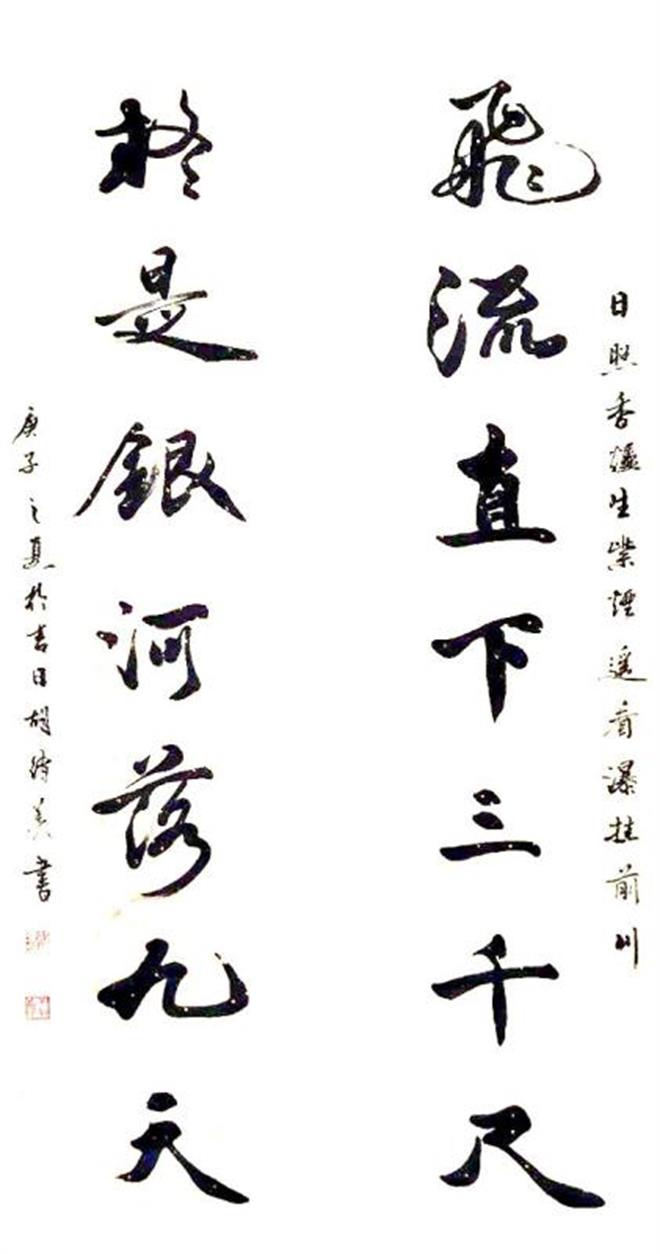 日照香爐生紫煙遙看瀑挂前川
飛流直下三千尺
於是銀河落九天
庚子之夏於日胡美書